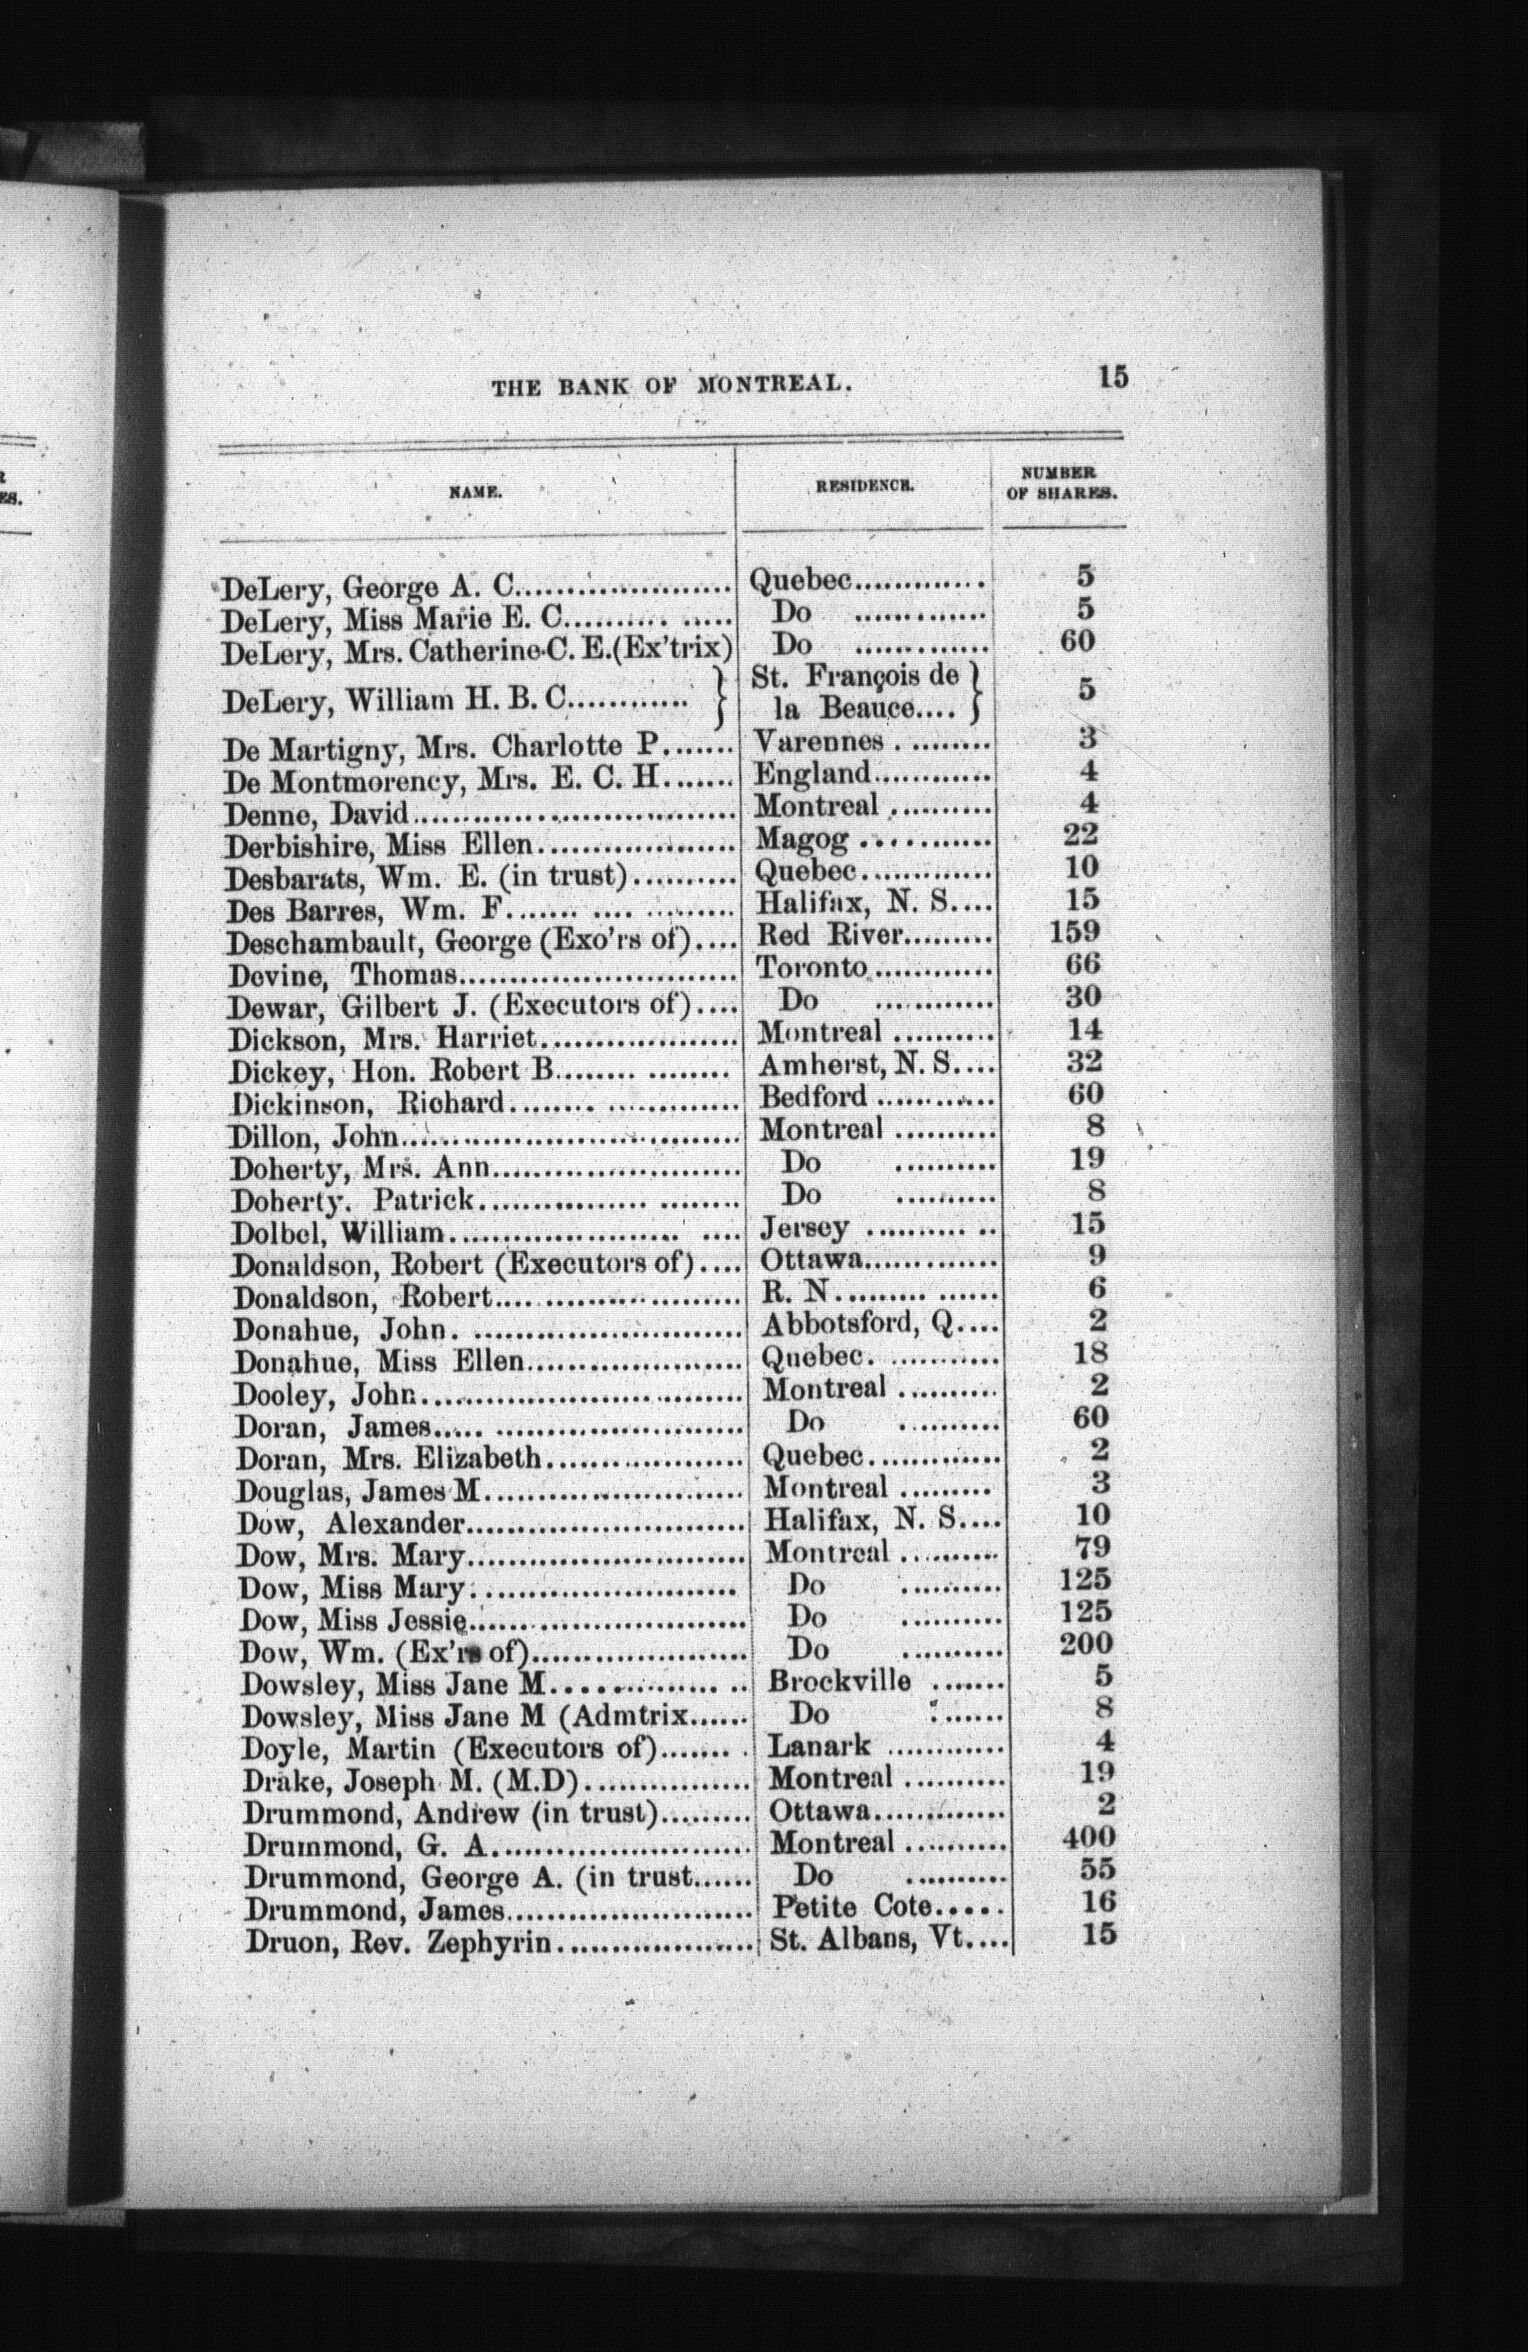 THE BANK OF MONTREAL. 15
NAME. RESIDENCE. NUMBER OF SHARES.
DeLery, George A. C..................... Quebec............. 5
DeLery, Miss Marie E. C.......... ..... Do ............. 5
DeLery, Mrs. Catherine C. E.(Ex'trix) Do ............. 60
DeLery, William H. B. C............ } St. François de la Beauce.... } 5
De Martigny, Mrs. Charlotte P....... Varennes . ........ 3
De Montmorency, Mrs. E. C. H....... England............ 4
Denne, David............................... Montreal .......... 4
Derbishire, Miss Ellen................... Magog ............. 22
Desbarats, Wm. E. (in trust).......... Quebec............. 10
Des Barres, Wm. F....... .... ......... Halifax, N. S.... 15
Deschambault, George (Exo'rs of).... Red River......... 159
Devine, Thomas........................... Toronto............ 66
Dewar, Gilbert J. (Executors of).... Do ............ 30
Dickson, Mrs. Harriet.................. Montreal .......... 14
Dickey, Hon. Robert B........ ........ Amherst, N. S.... 32
Dickinson, Richard........ ............. Bedford ............ 60
Dillon, John................................ Montreal .......... 8
Doherty, Mrs. Ann........................ Do .......... 19
Doherty. Patrick................ ........ Do .......... 8
Dolbel, William...................... .... Jersey .......... .. 15
Donaldson, Robert (Executors of).... Ottawa............. 9
Donaldson, Robert.... ................... R. N......... ...... 6
Donahue, John. .......................... Abbotsford, Q.... 2
Donahue, Miss Ellen..................... Quebec. ........... 18
Dooley, John............................... Montreal .......... 2
Doran, James..... ........................ Do .......... 60
Doran, Mrs. Elizabeth................... Quebec............. 2
Douglas, James M......................... Montreal ......... 3
Dow, Alexander........................... Halifax, N. S.... 10
Dow, Mrs. Mary........................... Montreal .......... 79
Dow, Miss Mary.......................... Do .......... 125
Dow, Miss Jessie.......................... Do .......... 125
Dow, Wm. (Ex'rs of)..................... Do .......... 200
Dowsley, Miss Jane M................ .. Brockville ....... 5
Dowsley, Miss Jane M (Admtrix...... Do ....... 8
Doyle, Martin (Executors of)....... . Lanark ............ 4
Drake, Joseph M. (M.D)................ Montreal .......... 19
Drummond, Andrew (in trust)......... Ottawa............. 2
Drummond, G. A......................... Montreal .......... 400
Drummond, George A. (in trust...... Do .......... 55
Drummond, James........................ Petite Cote..... 16
Druon, Rev. Zephyrin................... St. Albans, Vt.... 15